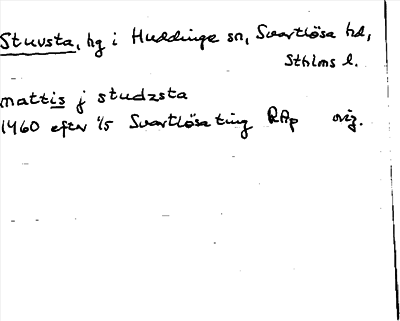 Stuvsta, hg i Huddinge sn, Svartlösa hd,
Sthlms l.
mattis j studzsta
1460 efter 1/5 Svartlösa ting RAp orig.